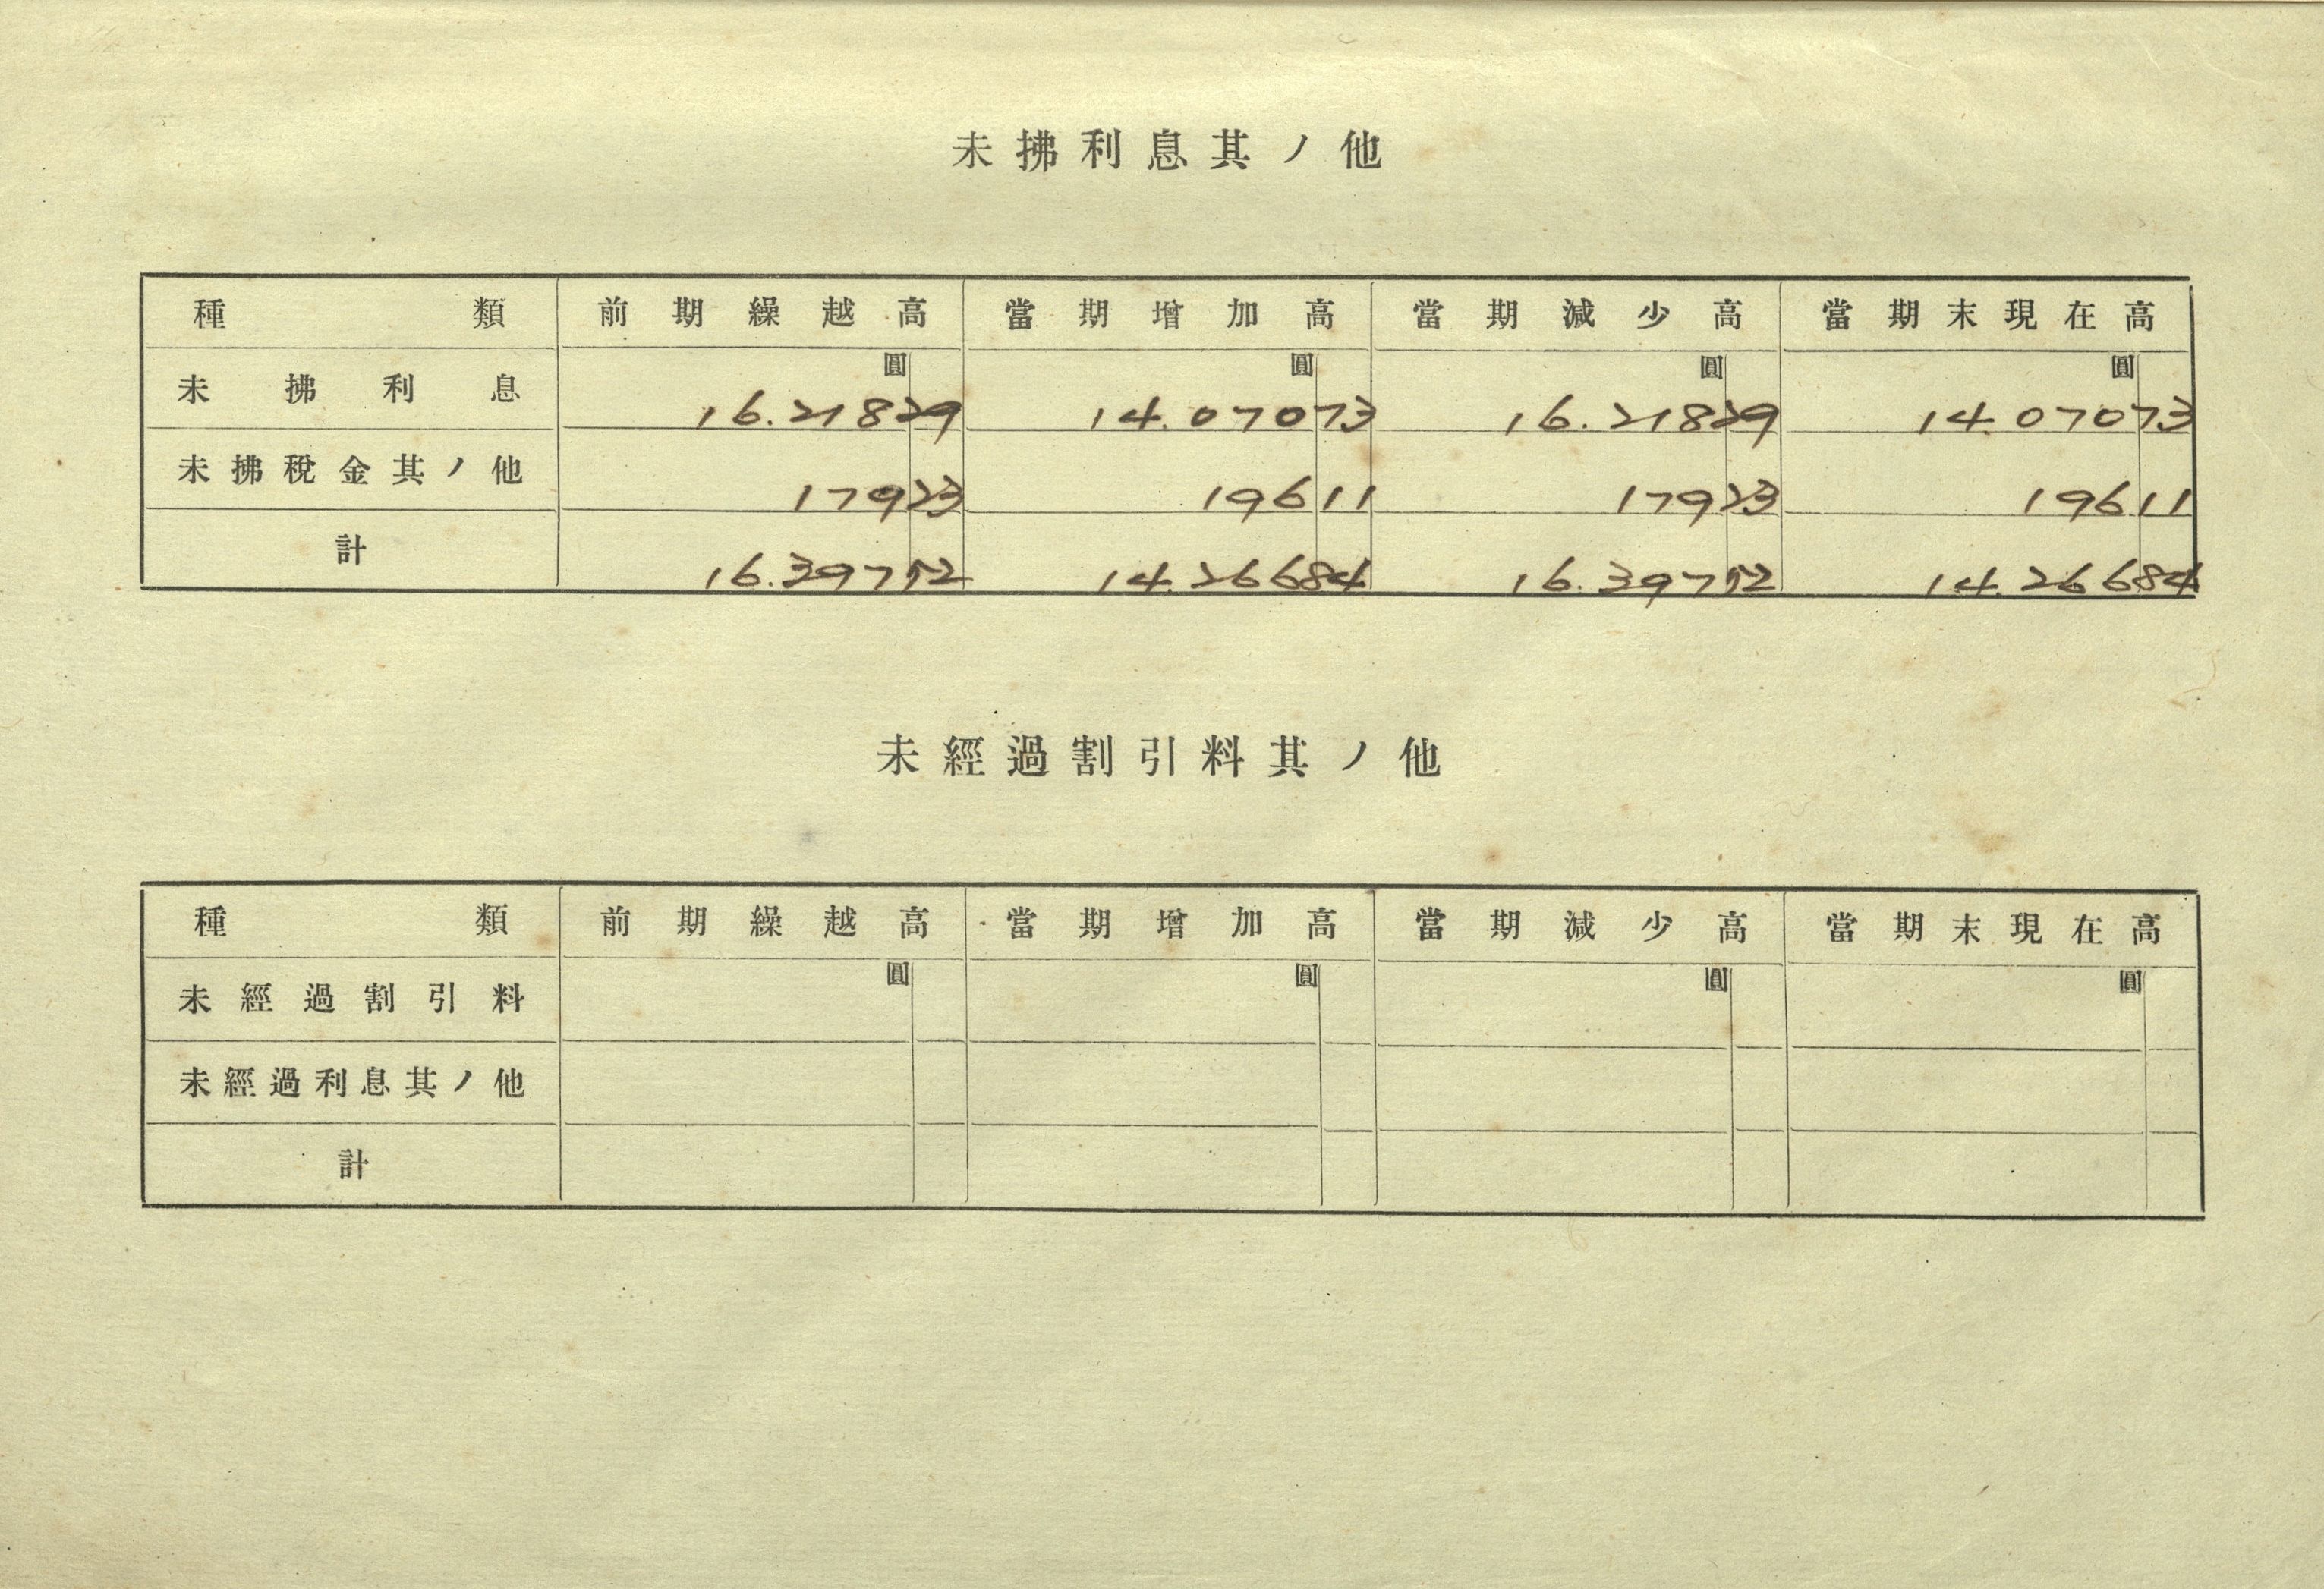 未拂利息其ノ他
種類 前期繰越高 當期增加高 當期減少高 當期末現在高
圓 圓 圓 圓
未拂利息 16.21829 14.07073 16.21829 14.07073
未拂稅金其ノ他 17923 19611 17923 19611
計 16.39752 14.26684 16.39752 14.26684
未經過割引料其ノ他
種類 前期繰越高 當期增加高 當期減少高 當期末現在高
圓 圓 圓 圓
未經過割引料
未經過利息其ノ他
計